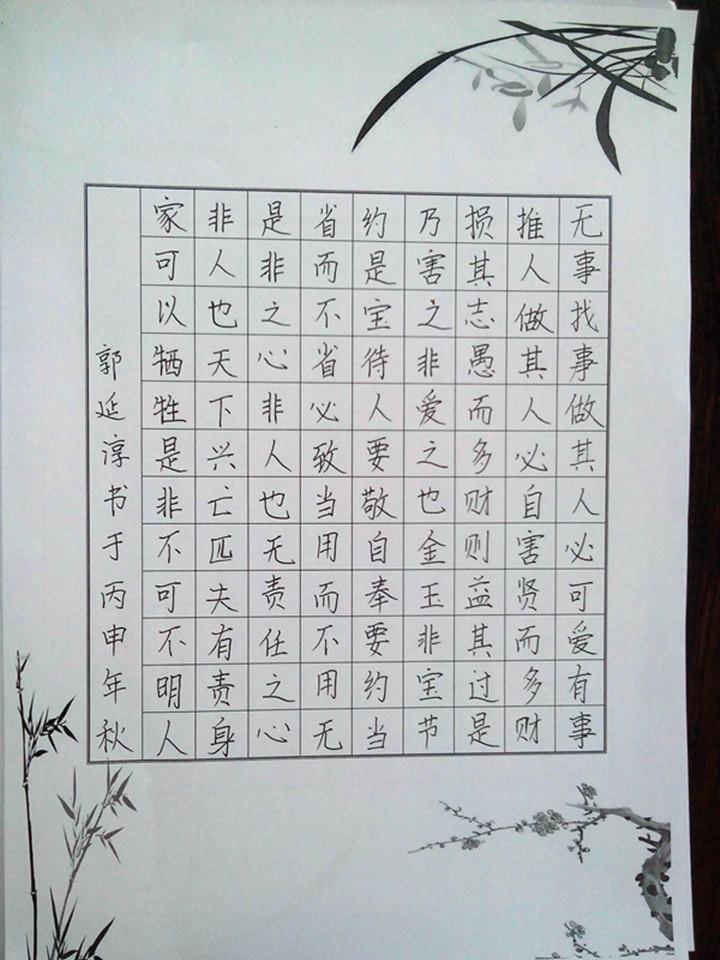 无事找事做其人必可爱有事
推人做其人必自害贤而多财
损其志愚而多财则益其过是
乃害之非爱之也金玉非宝节
约是宝待人要敬自奉要约当
省而不省必致当用而不用无
是非之心非人也无责任之心
非人也天下兴亡匹夫有责身
家可以牺牲是非不可不明人
郭延淳书于丙申年秋